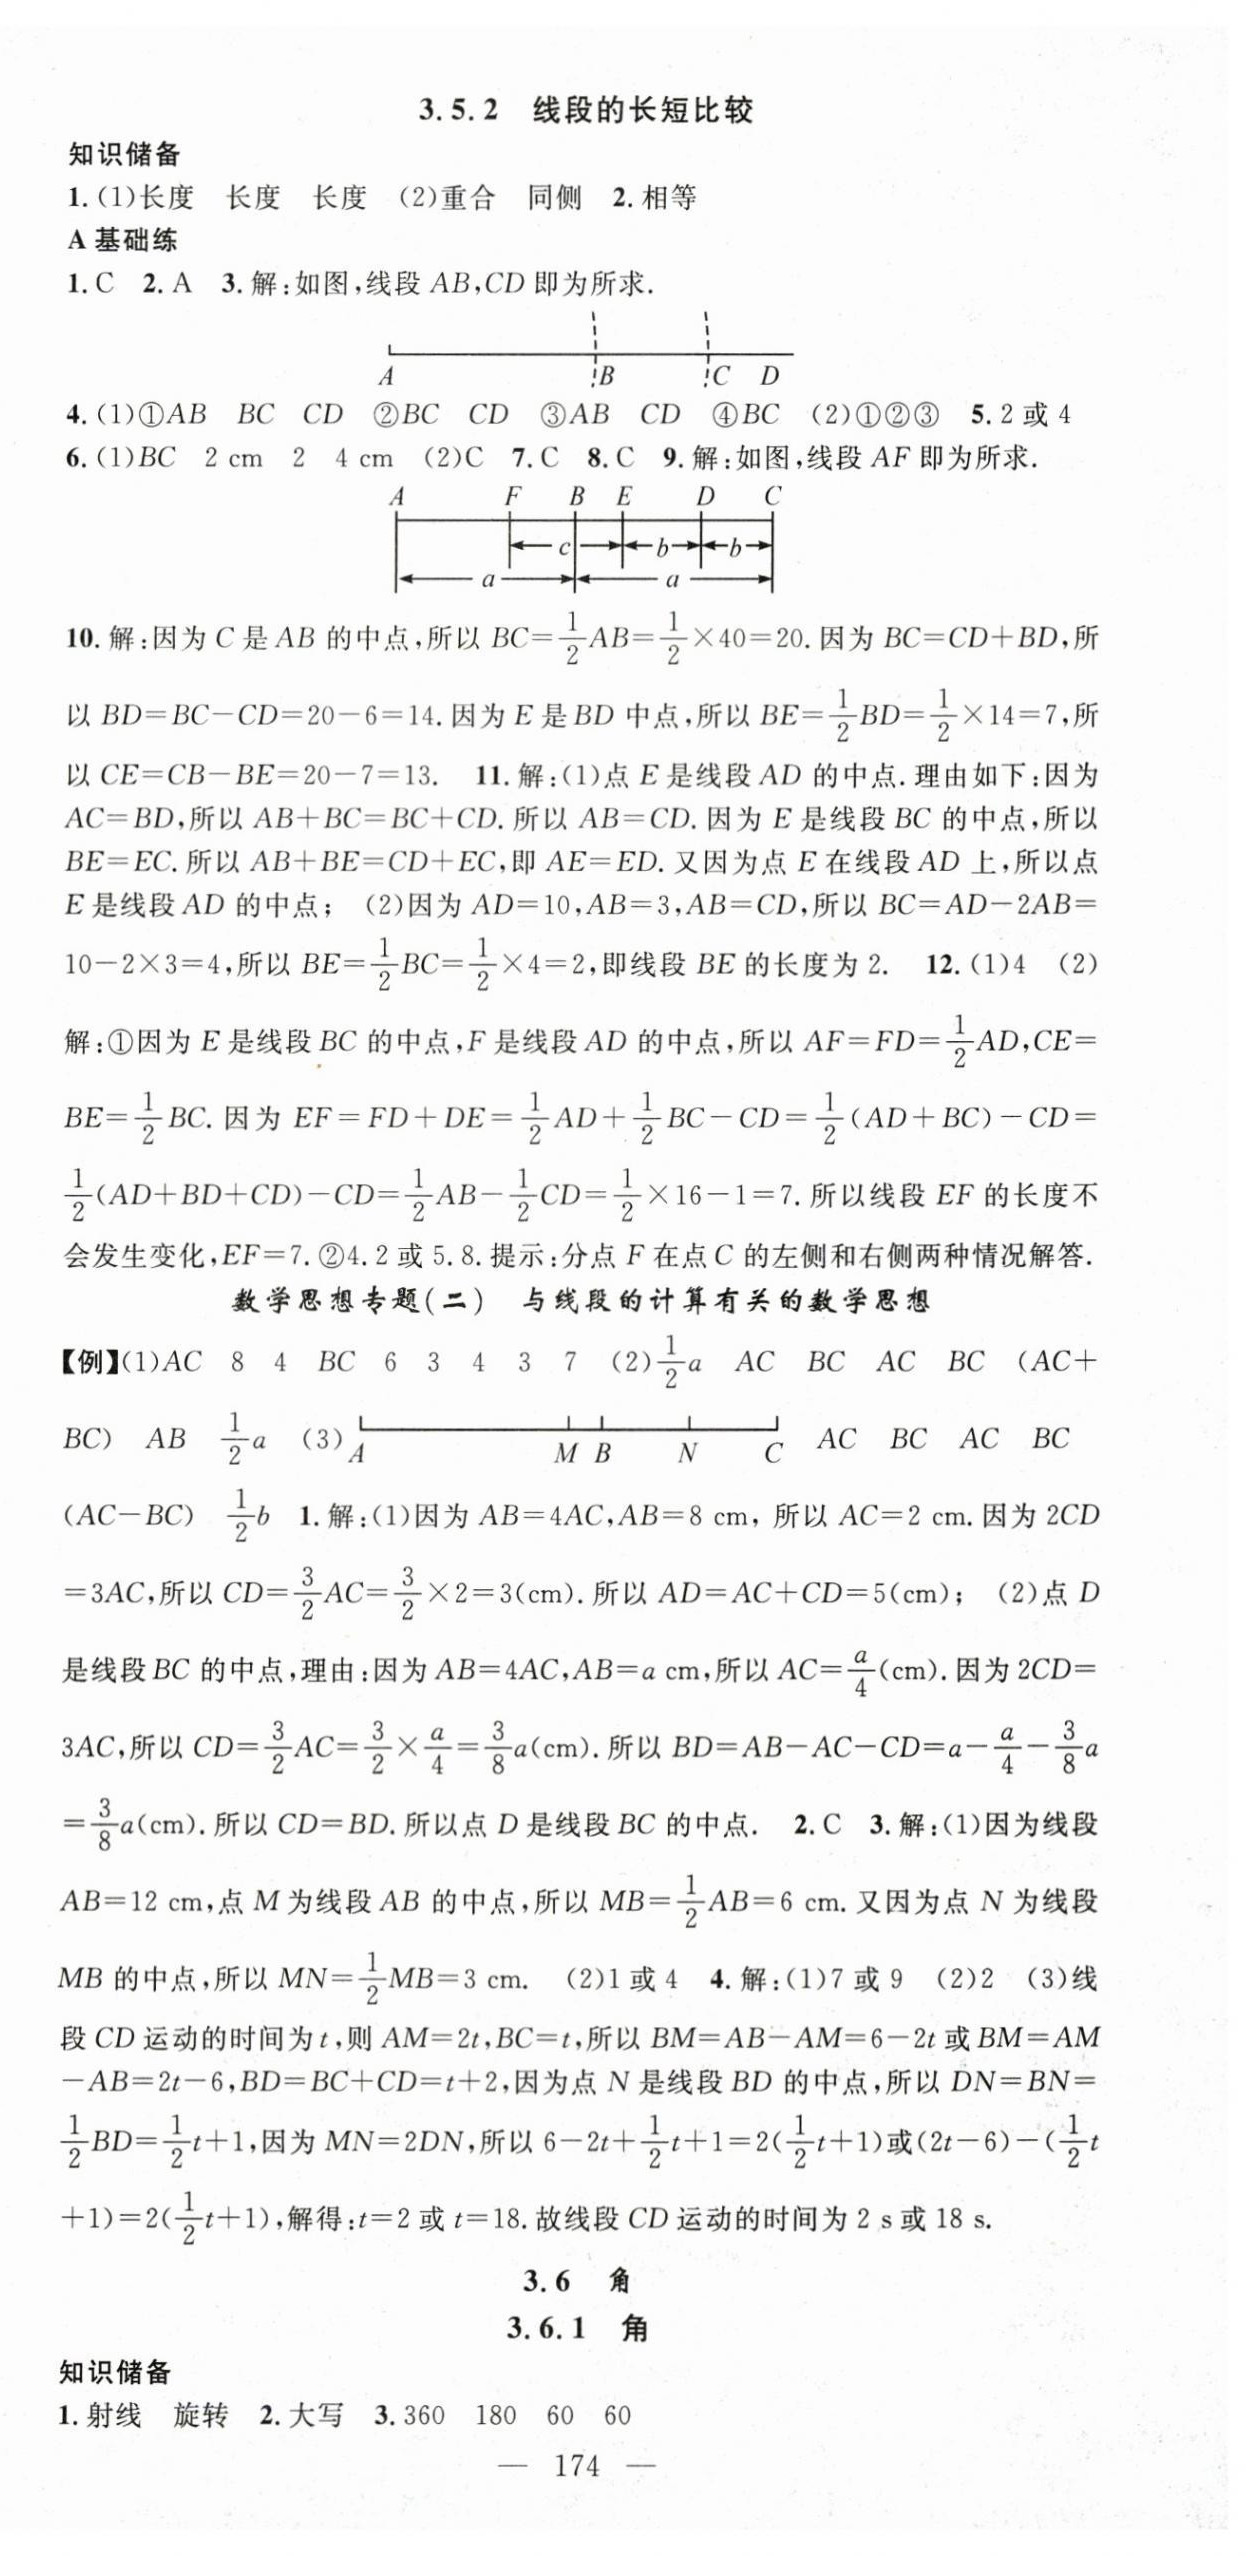 3.5.2 线段的长短比较
知识储备
1.(1)长度 长度 长度 (2)重合 同侧 2.相等
A 基础练
1.C 2.A 3.解:如图,线段 AB,CD 即为所求.
A B C D
4.(1)①AB BC CD ②BC CD ③AB CD ④BC (2)①②③ 5.2 或 4
6.(1)BC 2 cm 2 4 cm (2)C 7.C 8.C 9.解:如图,线段 AF 即为所求.
A F B E D C
c b b
a a
10.解:因为 C 是 AB 的中点,所以 BC=1/2AB=1/2×40=20.因为 BC=CD+BD,所
以 BD=BC-CD=20-6=14.因为 E 是 BD 中点,所以 BE=1/2BD=1/2×14=7,所
以 CE=CB-BE=20-7=13. 11.解:(1)点 E 是线段 AD 的中点.理由如下:因为
AC=BD,所以 AB+BC=BC+CD.所以 AB=CD.因为 E 是线段 BC 的中点,所以
BE=EC.所以 AB+BE=CD+EC,即 AE=ED.又因为点 E 在线段 AD 上,所以点
E 是线段 AD 的中点; (2)因为 AD=10,AB=3,AB=CD,所以 BC=AD-2AB=
10-2×3=4,所以 BE=1/2BC=1/2×4=2,即线段 BE 的长度为 2. 12.(1)4 (2)
解:①因为 E 是线段 BC 的中点,F 是线段 AD 的中点,所以 AF=FD=1/2AD,CE=
BE=1/2BC.因为 EF=FD+DE=1/2AD+1/2BC-CD=1/2(AD+BC)-CD=
1/2(AD+BD+CD)-CD=1/2AB-1/2CD=1/2×16-1=7.所以线段 EF 的长度不
会发生变化,EF=7.②4.2 或 5.8.提示:分点 F 在点 C 的左侧和右侧两种情况解答.
数学思想专题(二) 与线段的计算有关的数学思想
【例】(1)AC 8 4 BC 6 3 4 3 7 (2)1/2a AC BC AC BC (AC+
BC) AB 1/2a (3) A M B N C AC BC AC BC
(AC-BC) 1/2b 1.解:(1)因为 AB=4AC,AB=8 cm, 所以 AC=2 cm.因为 2CD
=3AC,所以 CD=3/2AC=3/2×2=3(cm).所以 AD=AC+CD=5(cm); (2)点 D
是线段 BC 的中点,理由:因为 AB=4AC,AB=a cm,所以 AC=a/4(cm).因为 2CD=
3AC,所以 CD=3/2AC=3/2×a/4=3/8a(cm).所以 BD=AB-AC-CD=a-a/4-3/8a
=3/8a(cm).所以 CD=BD.所以点 D 是线段 BC 的中点. 2.C 3.解:(1)因为线段
AB=12 cm,点 M 为线段 AB 的中点,所以 MB=1/2AB=6 cm.又因为点 N 为线段
MB 的中点,所以 MN=1/2MB=3 cm. (2)1 或 4 4.解:(1)7 或 9 (2)2 (3)线
段 CD 运动的时间为 t,则 AM=2t,BC=t,所以 BM=AB-AM=6-2t 或 BM=AM
-AB=2t-6,BD=BC+CD=t+2,因为点 N 是线段 BD 的中点,所以 DN=BN=
1/2BD=1/2t+1,因为 MN=2DN,所以 6-2t+1/2t+1=2(1/2t+1)或(2t-6)-(1/2t
+1)=2(1/2t+1),解得:t=2 或 t=18.故线段 CD 运动的时间为 2 s 或 18 s.
3.6 角
3.6.1 角
知识储备
1.射线 旋转 2.大写 3.360 180 60 60
— 174 —